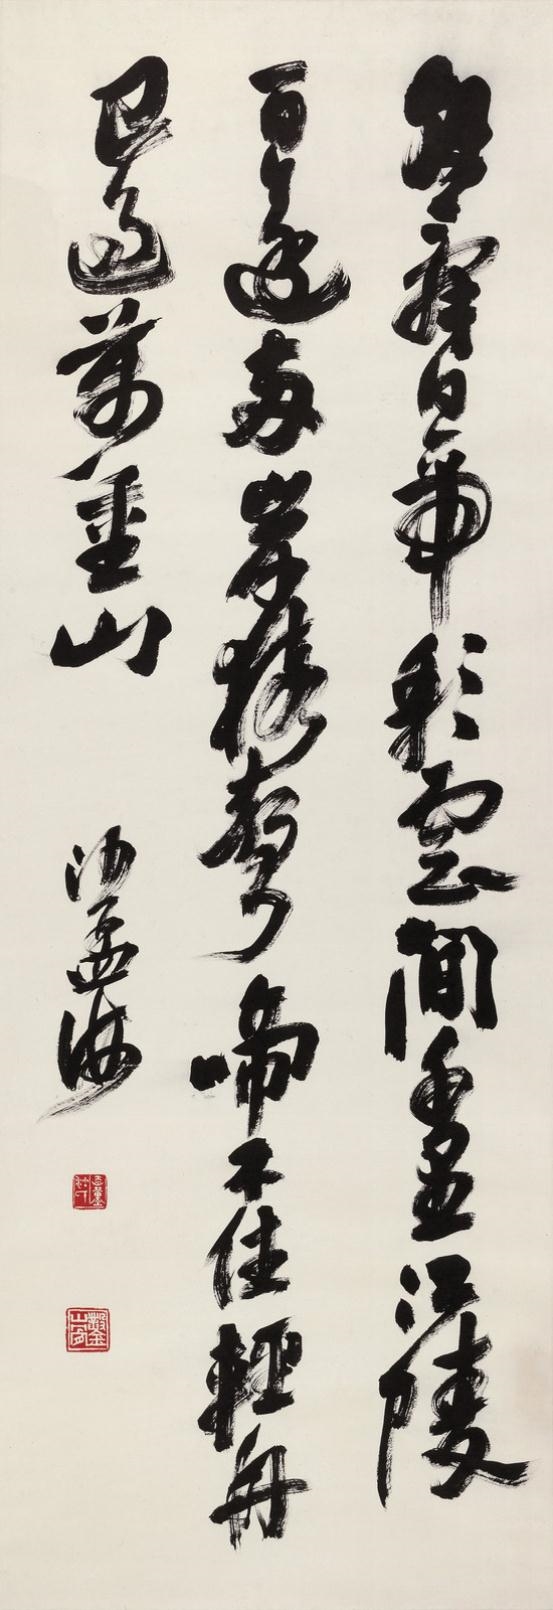 朝辭白帝彩雲間千里江陵
一日還兩岸猿聲啼不住輕舟
已過萬重山
沙孟海